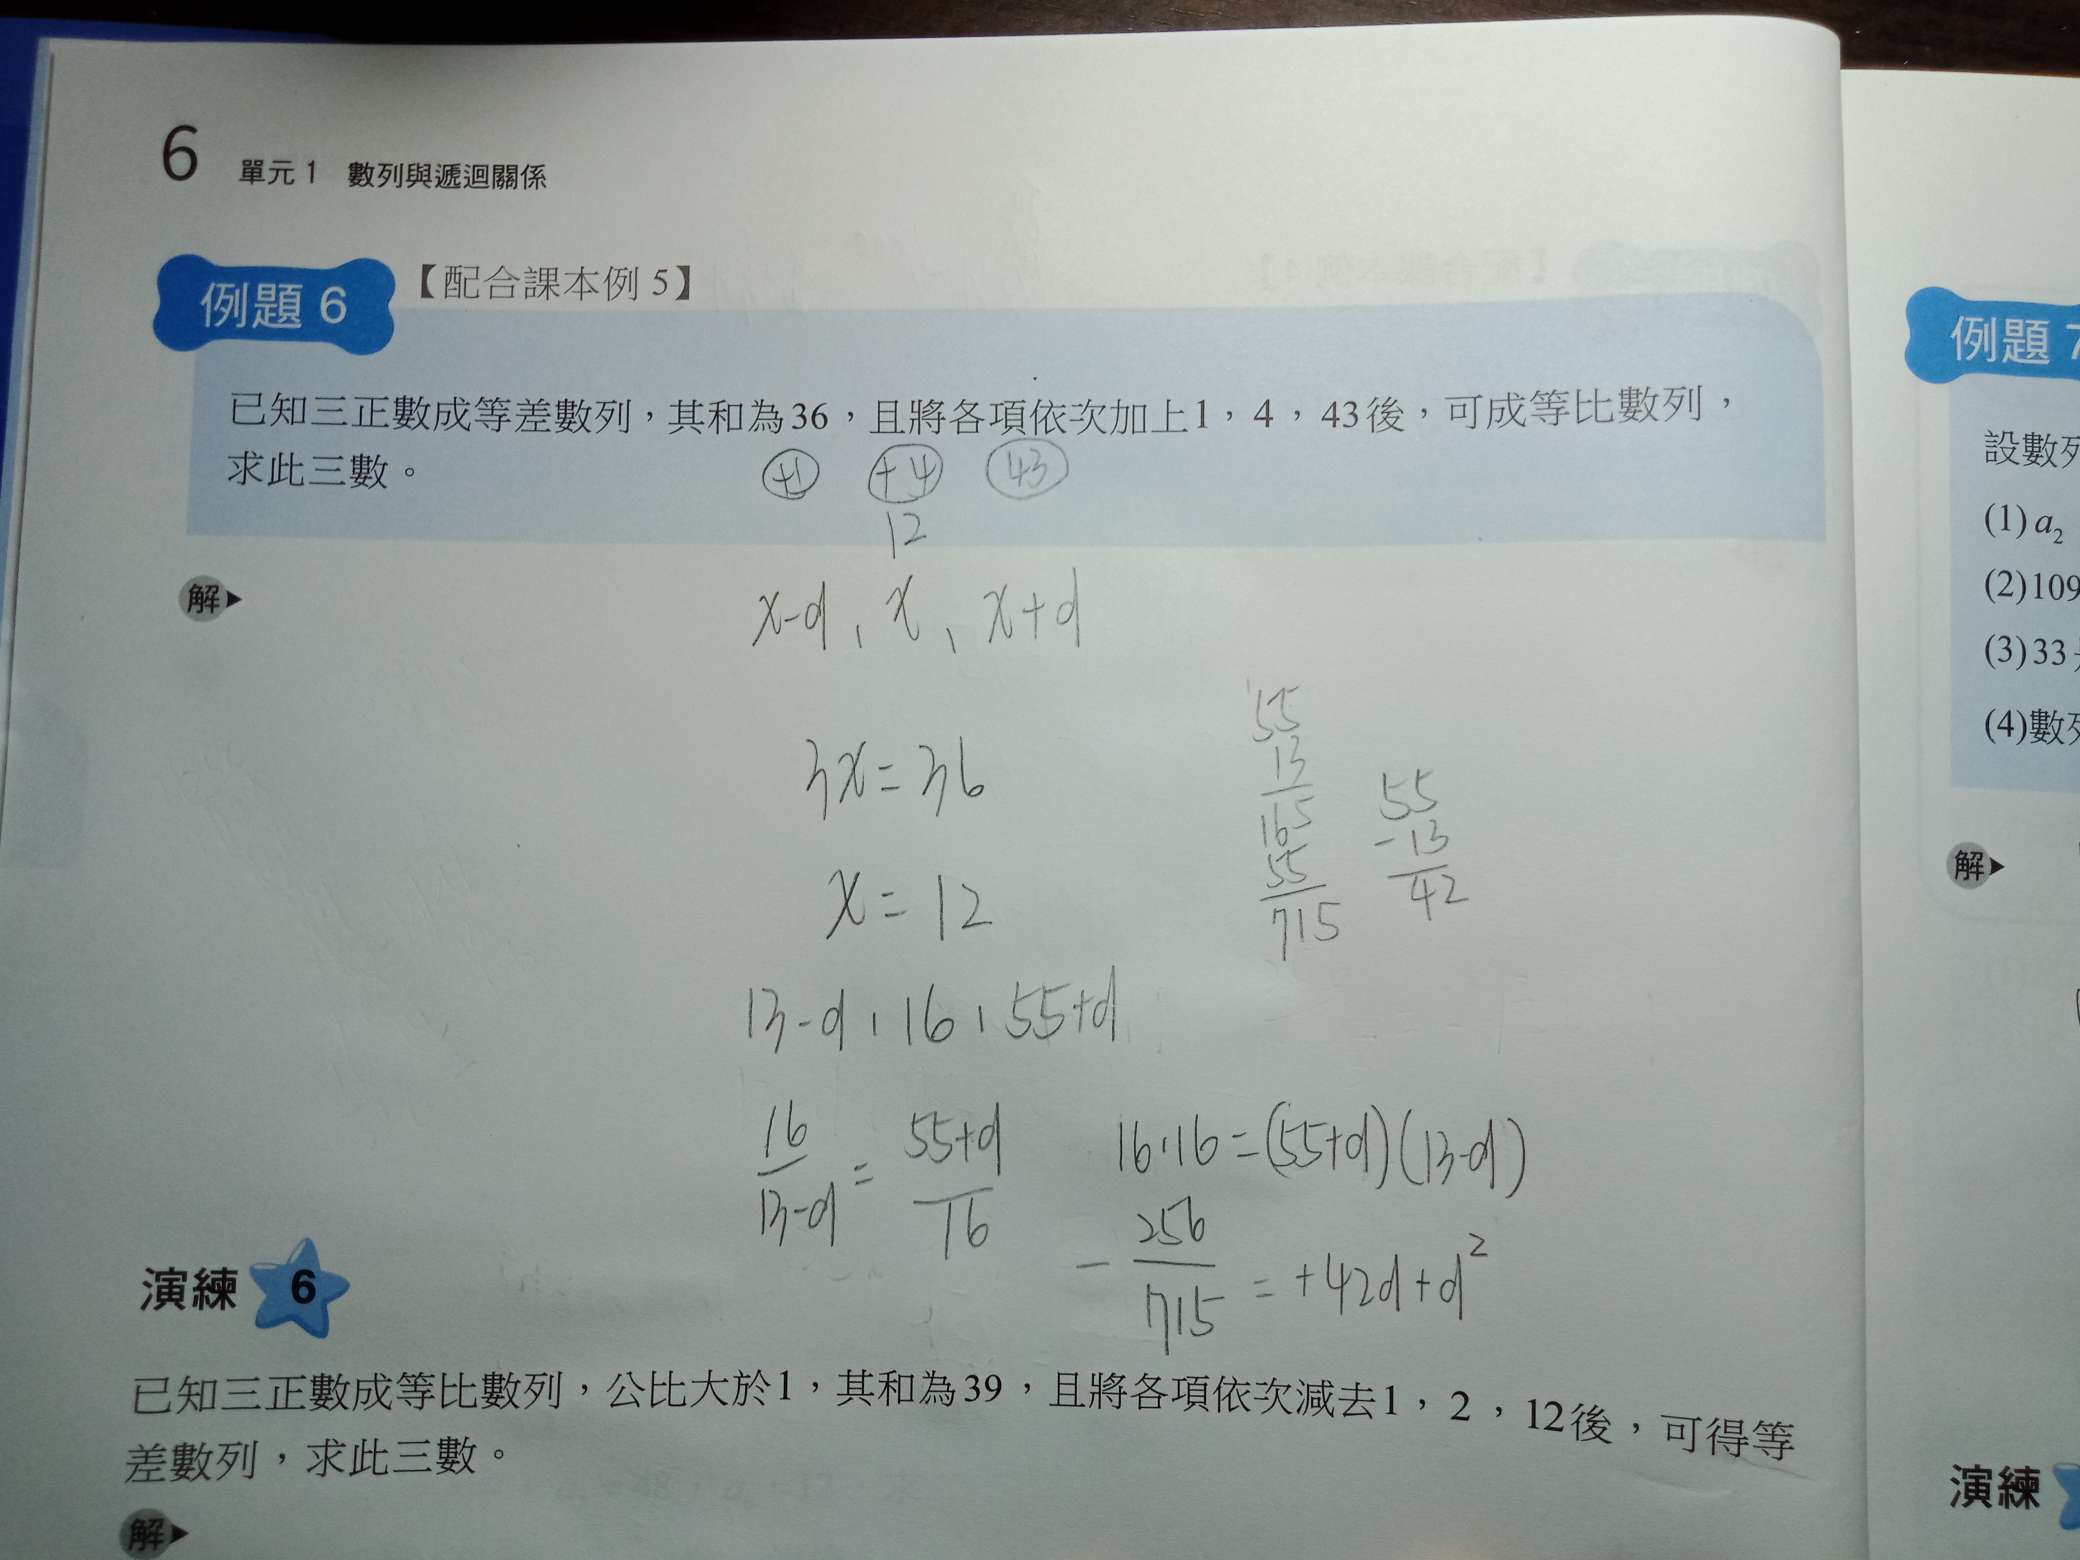 6 單元1 數列與遞迴關係
例題 6 【配合課本例 5】
已知三正數成等差數列，其和為36，且將各項依次加上1，4，43後，可成等比數列，
求此三數。
+1 +4 43
12
解
x-d, x, x+d
3x=36
x=12
55
13
165
55
715
55
-13
42
13-d, 16, 55+d
16/13-d = 55+d/16
16·16=(55+d)(13-d)
256
- 715 = +42d+d²
演練 6
已知三正數成等比數列，公比大於1，其和為39，且將各項依次減去1，2，12後，可得等
差數列，求此三數。
解
例題 7
設數列
(1) a₂
(2)109
(3)33
(4)數列
解
演練